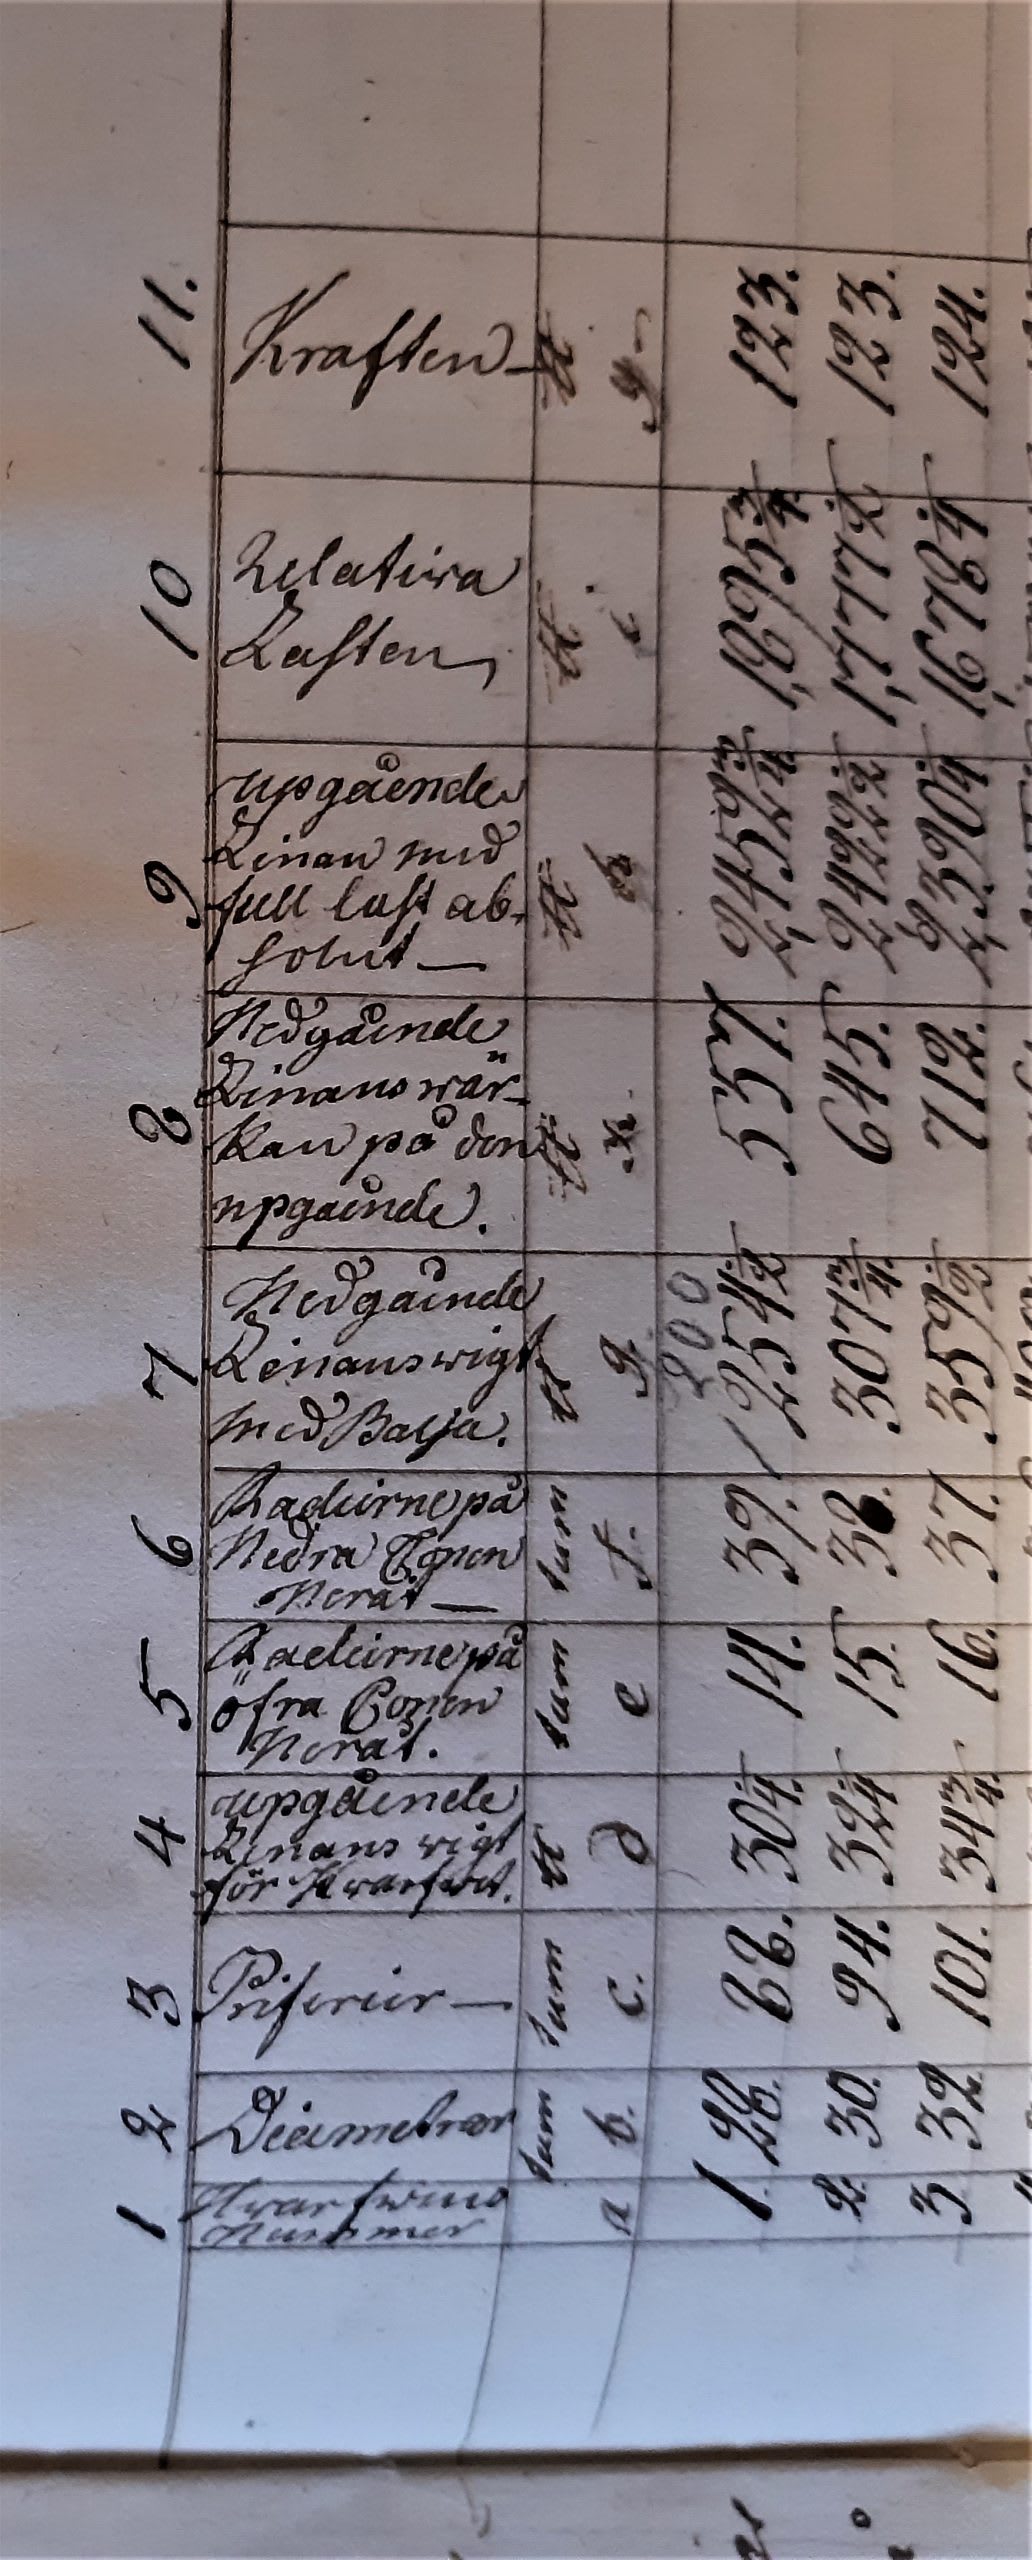 1 2 3 4 5 6 7 8 9 10 11.
Hwarfwens
Nummer
Diametrar
Periferier —
upgående
Linans wigt
för Hwarfwet.
Radierne på
öfra Conen
Neråt.
Radierne på
Nedra Conen
Neråt —
Nedgående
Linans wigt
med Balja.
Nedgående
Linans wär-
kan på den
upgående.
upgående
Linan med
full last ab-
solut —
Relativa
Lasten,
Kraften —
tum tum ℔ tum tum ℔ ℔ ℔ ℔ ℔
a b. c. d e f. g.
200
1. 28. 88. 30 1/4. 14. 39. 254 1/2 551. 123.
2. 30. 94. 32 1/4 15. 38. 307 3/4. 645. 123.
3 32. 101. 34 3/4. 16. 37. 359 1/2 712. 124.